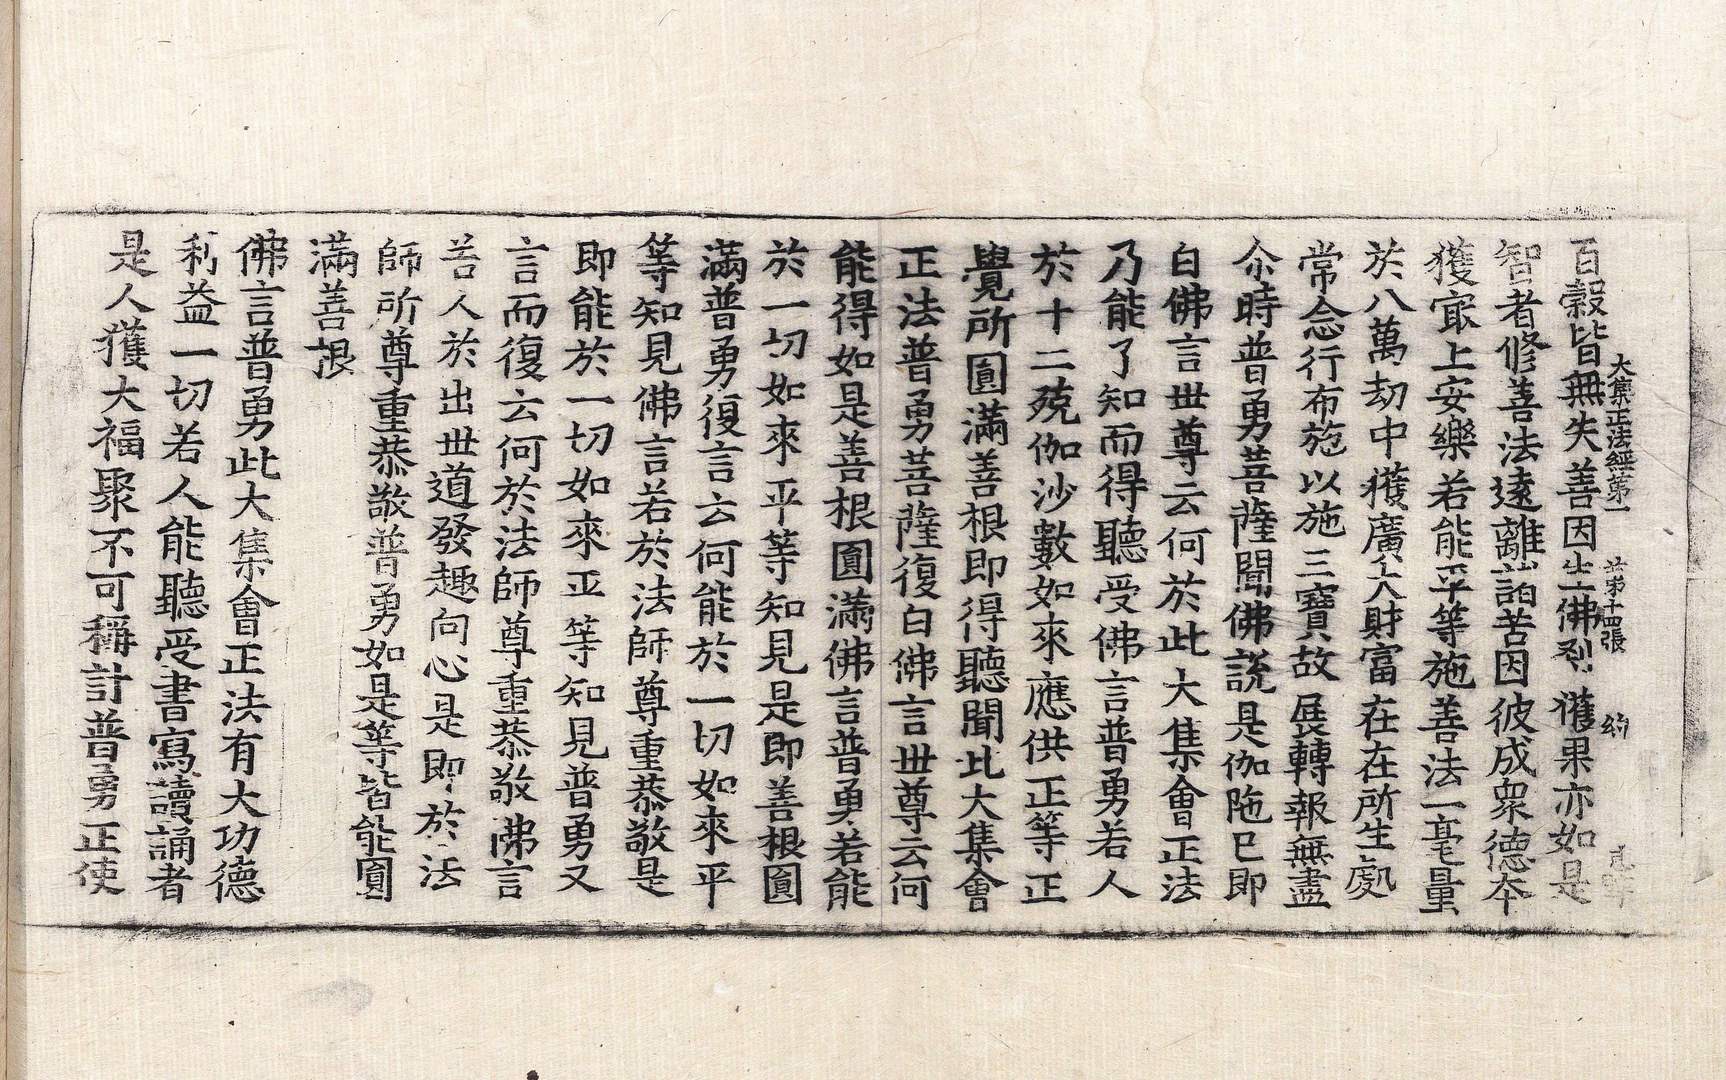 大集正法經第一 第十四張 約
百糓皆無失善因生佛刹獲果亦如是
智者修善法遠離諸苦因彼成衆德本
獲㝡上安樂若能平等施善法一毫量
於八萬劫中獲廣大財富在在所生處
常念行布施以施三寶故展轉報無盡
尒時普勇菩薩聞佛說是伽陁已即
白佛言世尊云何於此大集會正法
乃能了知而得聽受佛言普勇若人
於十二殑伽沙數如來應供正等正
覺所圓滿善根即得聽聞此大集會
正法普勇菩薩復白佛言世尊云何
能得如是善根圓滿佛言普勇若能
於一切如來平等知見是即善根圓
滿普勇復言云何能於一切如來平
等知見佛言若於法師尊重恭敬是
即能於一切如來平等知見普勇又
言而復云何於法師尊重恭敬佛言
若人於出世道發趣向心是即於法
師所尊重恭敬普勇如是等皆能圓
滿善根
佛言普勇此大集會正法有大功德
利益一切若人能聽受書寫讀誦者
是人獲大福聚不可稱計普勇正使